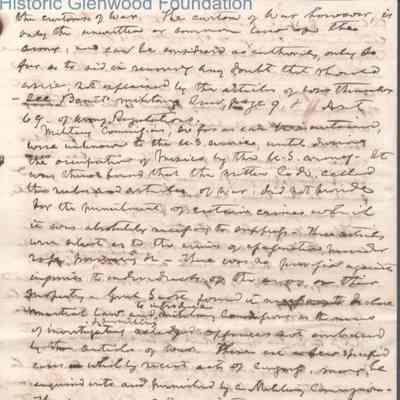 Historic Glenwood Foundation
the customs of War. The custom of War however, is
only the unwritten or common law of the
army; and can be considered as authority, only so
far as to aid in removing any doubt that should
arise; not explained by the articles of
See Military Law, page 9, Art
69. of Army Regulations.
Military Commissions, so far as can be ascertained,
were unknown to the U.S. service, until during
the occupation of Mexico, by the U.S. army. It
was there found that the written Code, called
the rules and articles of War; did not provide
for the punishment of certain crimes which
it was absolutely necessary to suppress. These articles
were silent as to the crimes of assassination murder
rape, &c - There was no provision against
injuries to individuals of the army or their
property. Genl Scott found it necessary to declare
Martial Law and Military as the means
of investigating offences not embraced
by the articles of War. There are a few specified
cases which by recent acts of Congress, may be
enquired into and punished by a Military Commission.